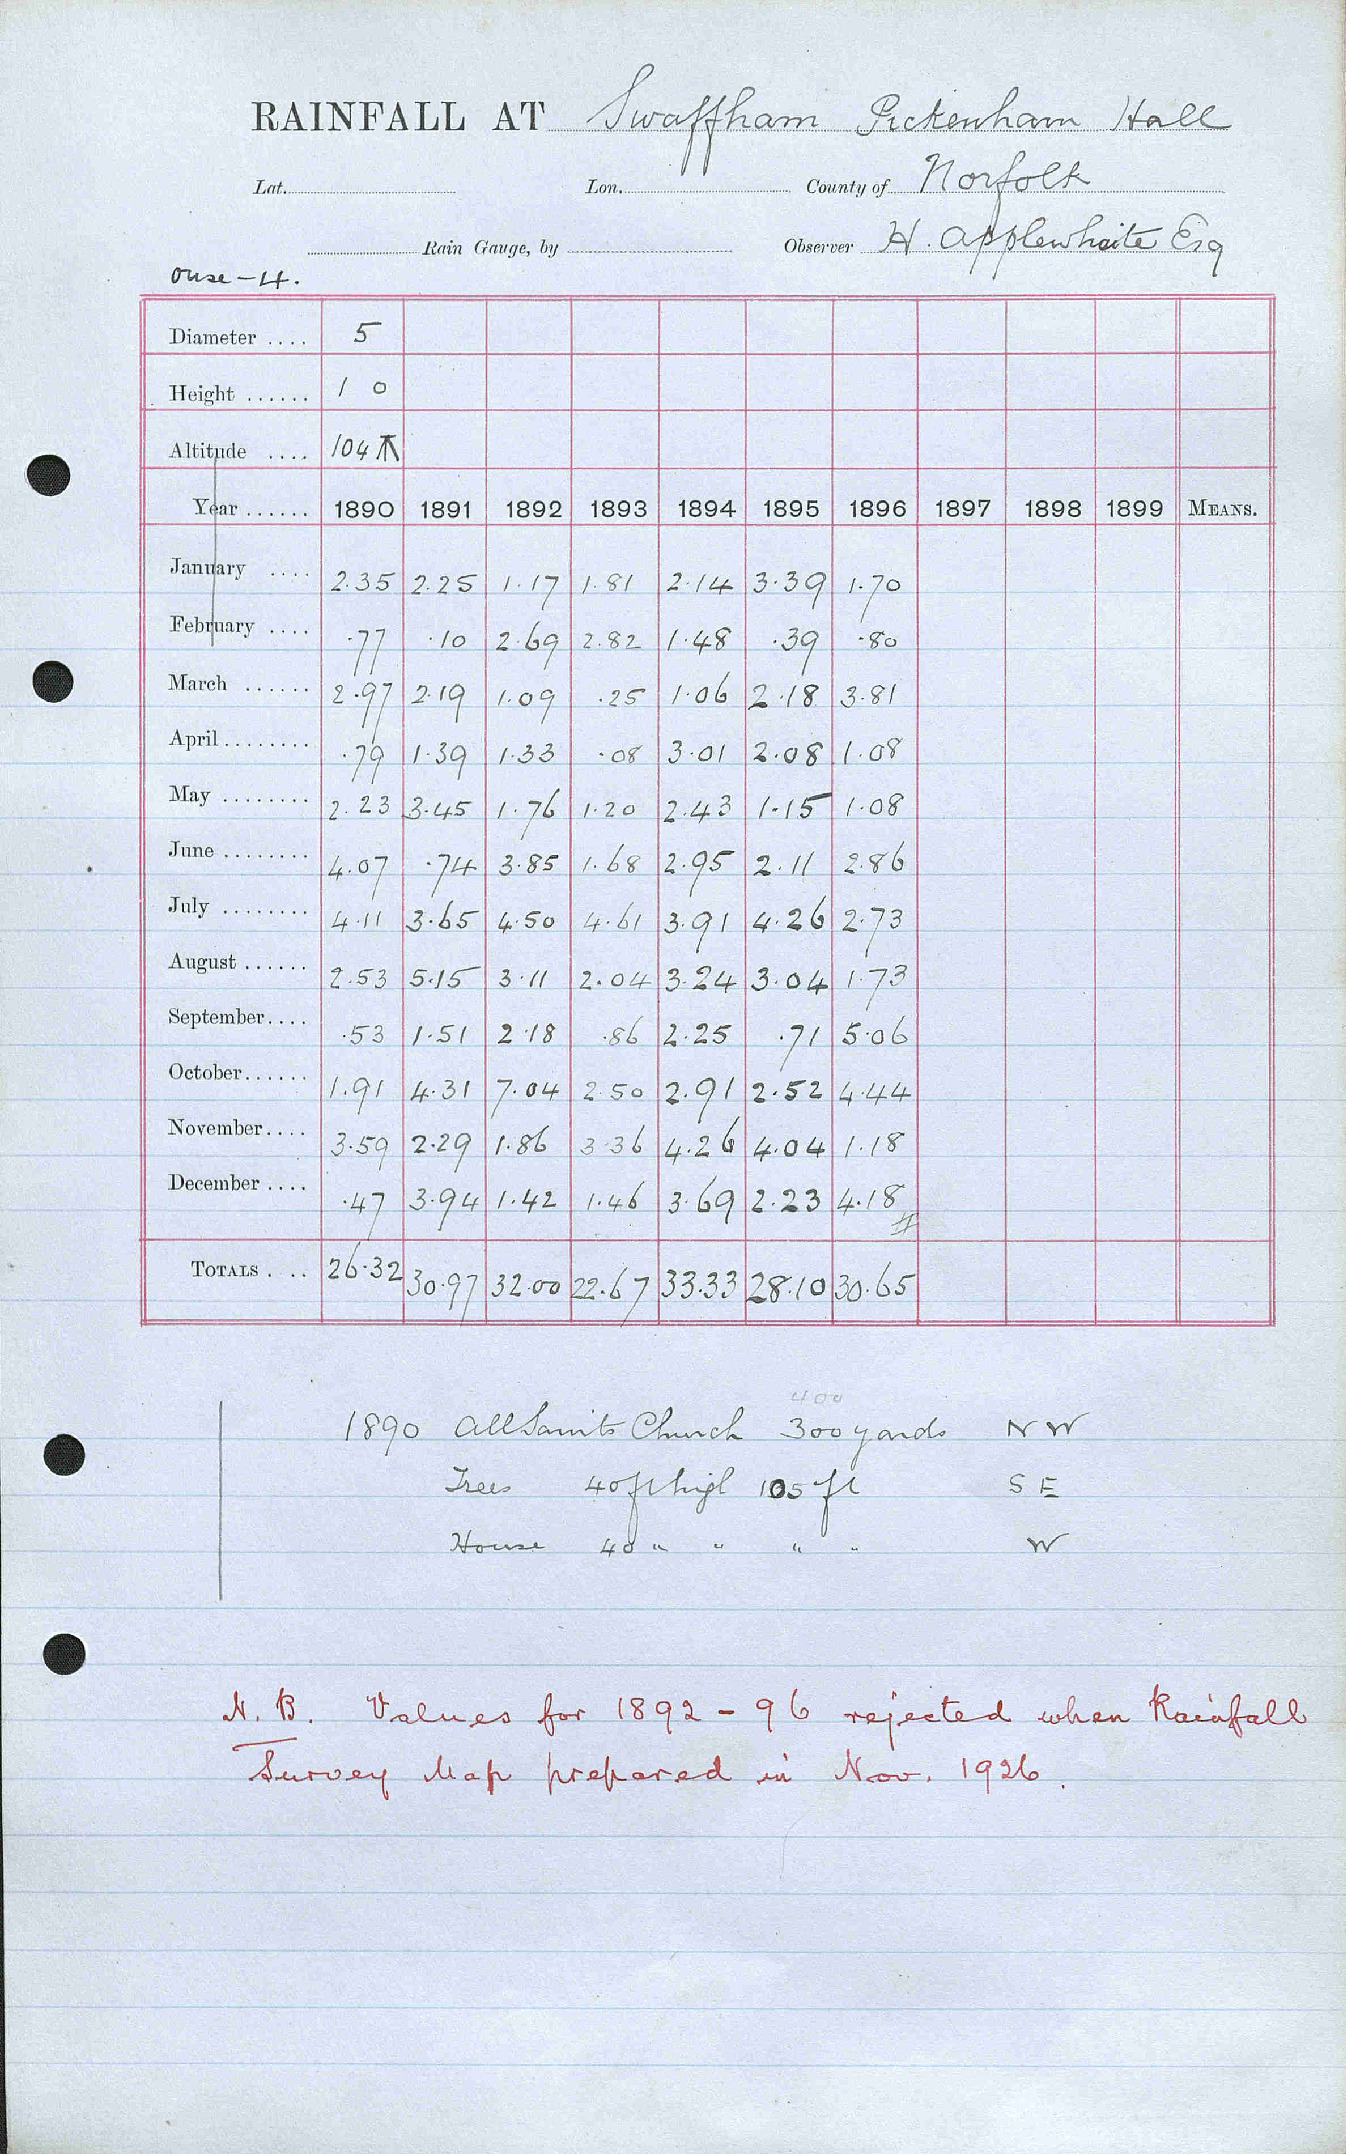 RAINFALL AT Swaffham Pickenham Hall
Lat. Lon. County of Norfolk
Rain Gauge, by Observer H. Applewhaite Esq
Ouse - 4.
Diameter .... 5
Height ...... 1 0
Altitude .... 104
Year ...... 1890 1891 1892 1893 1894 1895 1896 1897 1898 1899 MEANS.
January .... 2.35 2.25 1.17 1.81 2.14 3.39 1.70
February .... .77 .10 2.69 2.82 1.48 .39 .80
March ...... 2.97 2.19 1.09 .25 1.06 2.18 3.81
April ........ .79 1.39 1.33 .08 3.01 2.08 1.08
May ........ 2.23 3.45 1.76 1.20 2.43 1.15 1.08
June ........ 4.07 .74 3.85 1.68 2.95 2.11 2.86
July ........ 4.11 3.65 4.50 4.61 3.91 4.26 2.73
August ...... 2.53 5.15 3.11 2.04 3.24 3.04 1.73
September .... .53 1.51 2.18 .86 2.25 .71 5.06
October ...... 1.91 4.31 7.04 2.50 2.91 2.52 4.44
November .... 3.59 2.29 1.86 3.36 4.26 4.04 1.18
December .... .47 3.94 1.42 1.46 3.69 2.23 4.18
TOTALS .... 26.32 30.97 32.00 22.67 33.33 28.10 30.65
400
1890 All Saints Church 300 yards NW
Trees 40 ft high 105 ft SE
House 40 " " " " W
N.B. Values for 1892 - 96 rejected when Rainfall
Survey Map prepared in Nov. 1926.